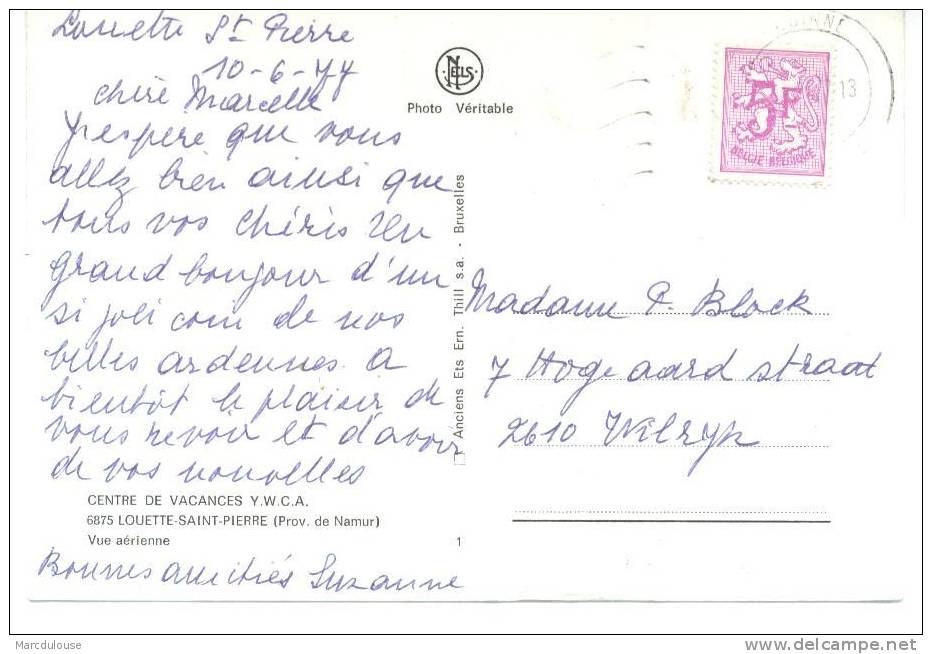 Louette St Pierre
10-6-74
chère Marcelle
j'espère que vous
allez bien ainsi que
tous vos chéris Un
grand bonjour d'un
si joli coin de nos
belles ardennes. A
bientôt le plaisir de
vous revoir et d'avoir
de vos nouvelles
CENTRE DE VACANCES Y.W.C.A.
6875 LOUETTE-SAINT-PIERRE (Prov. de Namur)
Vue aérienne 1
Bonnes amitiés Suzanne
NELS
Photo Véritable
Anciens Ets Ern. Thill s.a. - Bruxelles
13
5F
BELGIE BELGIQUE
Madame P. Block
7 Hoge aard straat
2610 Wilryk
Marcdulouse
delcampe.net